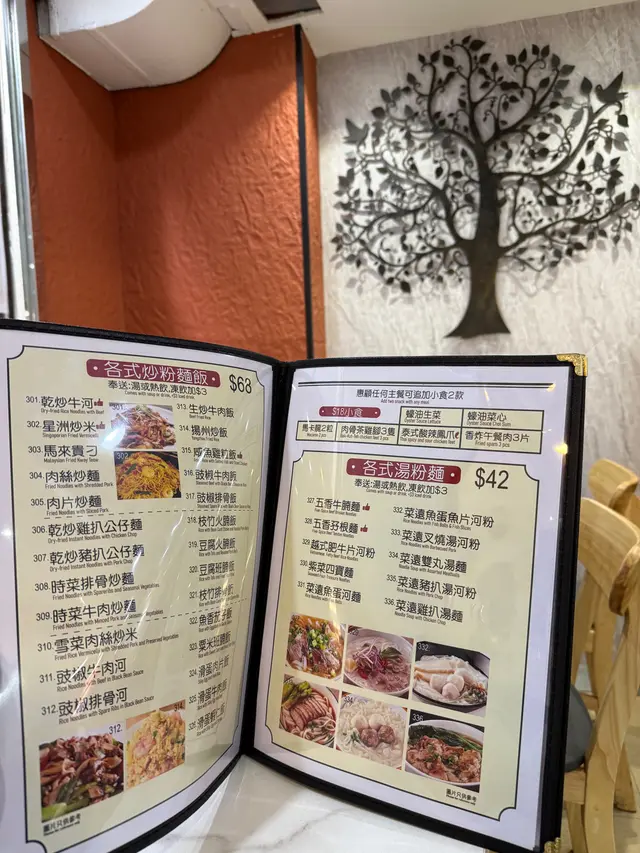 各式炒粉麵飯 $63
奉送:湯或熱飲,凍飲加$3
Comes with soup or drink, +$3 iced drink
301. 乾炒牛河
Dry-fried Rice Noodles with Beef
302. 星洲炒米
Singaporean Fried Vermicelli
303. 馬來貴刁
Malaysian Fried Kway Teow
304. 肉絲炒麵
Fried Noodles with Shredded Pork
305. 肉片炒麵
Fried Noodles with Sliced Pork
306. 乾炒雞扒公仔麵
Dry-fried Instant Noodles with Chicken Chop
307. 乾炒豬扒公仔麵
Dry-fried Instant Noodles with Pork Chop
308. 時菜排骨炒麵
Fried Noodles with Spareribs and Seasonal Vegetables
309. 時菜牛肉炒麵
310. 雪菜肉絲炒米
Fried Rice Vermicelli with Shredded Pork and Preserved Vegetable
311. 豉椒牛肉河
Rice Noodles with Beef in Black Bean Sauce
312. 豉椒排骨河
Rice Noodles with Spare Ribs in Black Bean Sauce
301.
302.
313. 生炒牛肉飯
314. 揚州炒飯
315. 咸魚雞粒飯
316. 豉椒牛肉飯
317. 豉椒排骨飯
318. 枝竹火腩飯
319. 豆腐火腩飯
320. 豆腐班腩飯
321. 枝竹排骨飯
322.
323. 粟米班腩飯
324. 滑蛋肉片飯
325. 滑蛋牛肉飯
326. 滑蛋蝦仁飯
312.
314.
圖片只供參考
惠顧任何主餐可追加小食2款
Add two snack with any meal
$18/小食
蠔油生菜
Oyster Sauce Lettuce
蠔油菜心
Oyster Sauce Choi Sum
馬卡龍2粒
Macaron 2 pcs
肉骨茶雞腳3隻
Bak-Kut-Teh chicken feet 3 pcs
泰式酸辣鳳爪
Thai spicy and sour chicken feet
香炸午餐肉3片
Fried spam 3 pcs
各式湯粉麵 $42
奉送:湯或熱飲,凍飲加$3
Comes with soup or drink, +$3 iced drink
327. 五香牛腩麵
328. 五香孖根麵
329. 越式肥牛片河粉
330. 紫菜四寶麵
331. 菜遠魚蛋河麵
332. 菜遠魚蛋魚片河粉
333. 菜遠叉燒湯河粉
334. 菜遠雙丸湯麵
335. 菜遠豬扒湯河粉
Rice Noodles with Pork Chop
336. 菜遠雞扒湯麵
Noodle Soup with Chicken Chop
332.
336.
圖片只供參考